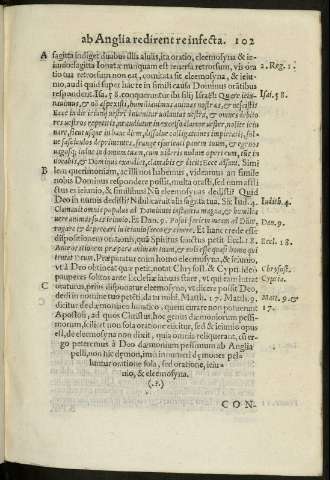 ab Anglia redirent re infecta. 102
A sagitta indiget duabus illis alulis, ita oratio, eleemosyna & ie-
iunio. sagitta Ionatæ nunquam est reuersa retrorsum, vis ora 2. Reg. 1.
tio tua retrorsum non eat, comitata sit eleemosyna, & ieiu-
nio, audi quid super hac re in simili causa Dominus oratibus
respondet. Isa. 58. conquerentur ibi filij Israël: Quare ieiu- Isai. 58.
nauimus, & nõ aspexisti, humiliauimus animas nostras, & nescisti?
Ecce in die ieiunij vestri inuenitur voluntas vestra, & omnes debito
res vestros repetitis,
nare, sicut usque in hanc diem, dissolue colligationes impietatis, sol-
ue fasciculos deprimentes, frange esurienti panem tuum, & egenos
vagosq́; induc in domum tuam, cum videris nudum operi eum, tũc in
vocabis, & Dominus exaudiet, clamabis & dicit: Ecce assum. Simi
B lem querimoniam, ac illi nos habemus, videamus an simile
nobis Dominus respondere possit, multa orasti, sed num affli
ctus es ieiunio, & similibus? Nũ eleemosynas dedisti? Quid
Deo in manus dedisti? Nihil: caruit alis sagitta tua. Sic Iud. 4. Iudith. 4.
Clamauit omnis populus ad Dominum instantia magna, & humilia
uere animas suas ieiunio. Et Dan. 9. Posui faciem meam ad Dñm, Dan. 9.
rogare & deprecari in ieiunio sacco & cinere. Et hanc credo esse
dispositionem orationis, quà Spiritus sanctus petit Eccl. 18. Eccl. 18.
Ante orationem præpara animam tuam, & noli esse quasi homo qui
tentat Deum. Præparatur enim homo eleemosyna, & ieiunio,
vt à Deo obtineat quæ petit, notat Chrysost. & Cypri. ideo Chrysost.
pauperes solitos ante Ecclesiæ ianuas stare, vt qui eum intrat Cypria.
C oraturus, prius disponatur eleemosyna, vt dicere possit Deo,
dedi in nomine tuo petẽti, da tu mihi. Matth. 17. Matth. 9. Matt. 9. &
dicitur de dæmoniaco lunatico, quem curare non poterant 17.
Apostoli, ad quos Christus, hoc genus dæmoniorum pessi-
morum, scilicet non sola oratione eiicitur, sed & ieiunio opus
est, de eleemosyna non dixit, quia omnia reliquerant, cũ er-
go peteremus à Deo dæmonium pessimum ab Anglia
pelli, non hic dæmon, imò innumeri dæmones pel-
luntur oratione sola, sed oratione, ieiu-
nio, & eleemosyna.
(.?.)
CON-